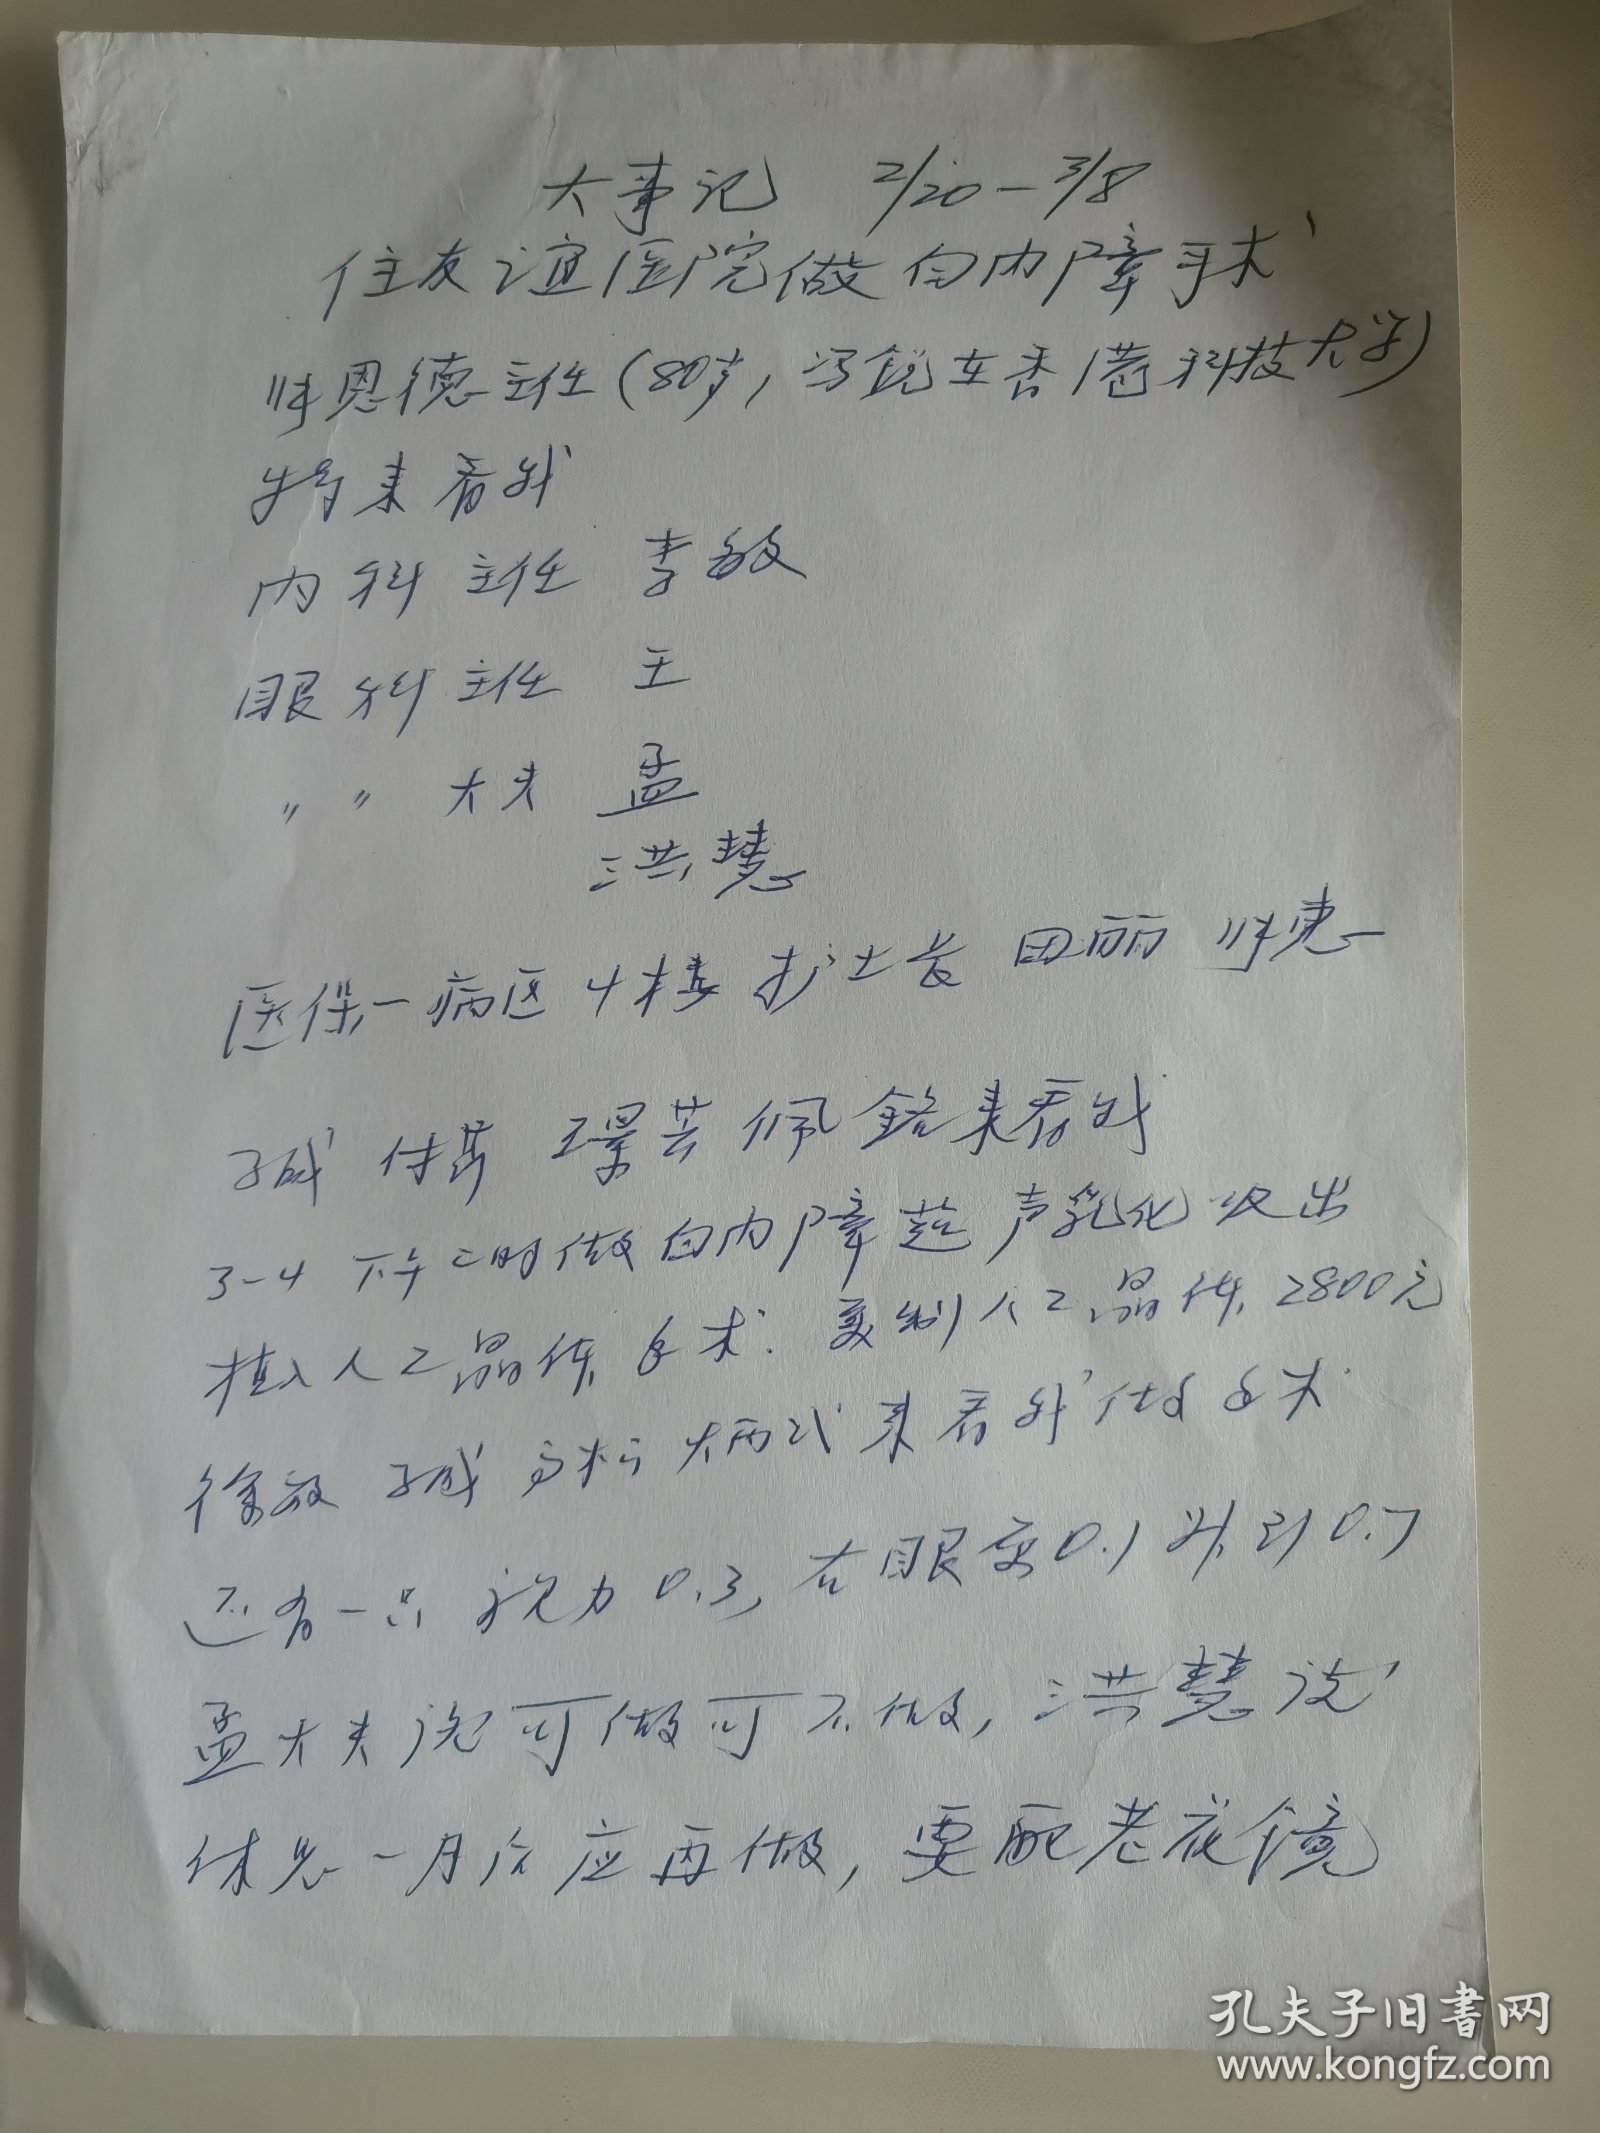 大事记 2/20—3/8
住友谊医院做白内障手术
帅恩德主任(80岁,冯锐在香港科技大学)
特来看我
内科主任 李敏
眼科主任 王
〃 〃 大夫 孟
洪慧
医保一病区 4楼 护士长 田丽 帅惠
诚 佳芸 璟芸 佩铭来看我
3-4 下午二时做白内障超声乳化吸出
植入人工晶体手术. 美制人工晶体, 2800元
徐敏 诚 来看我做手术
还有一只视力0.3, 右眼变0.1升到0.7
孟大夫说可做可不做, 洪慧说
休息一月后应再做, 要配老花镜
孔夫子旧书网
www.kongfz.com